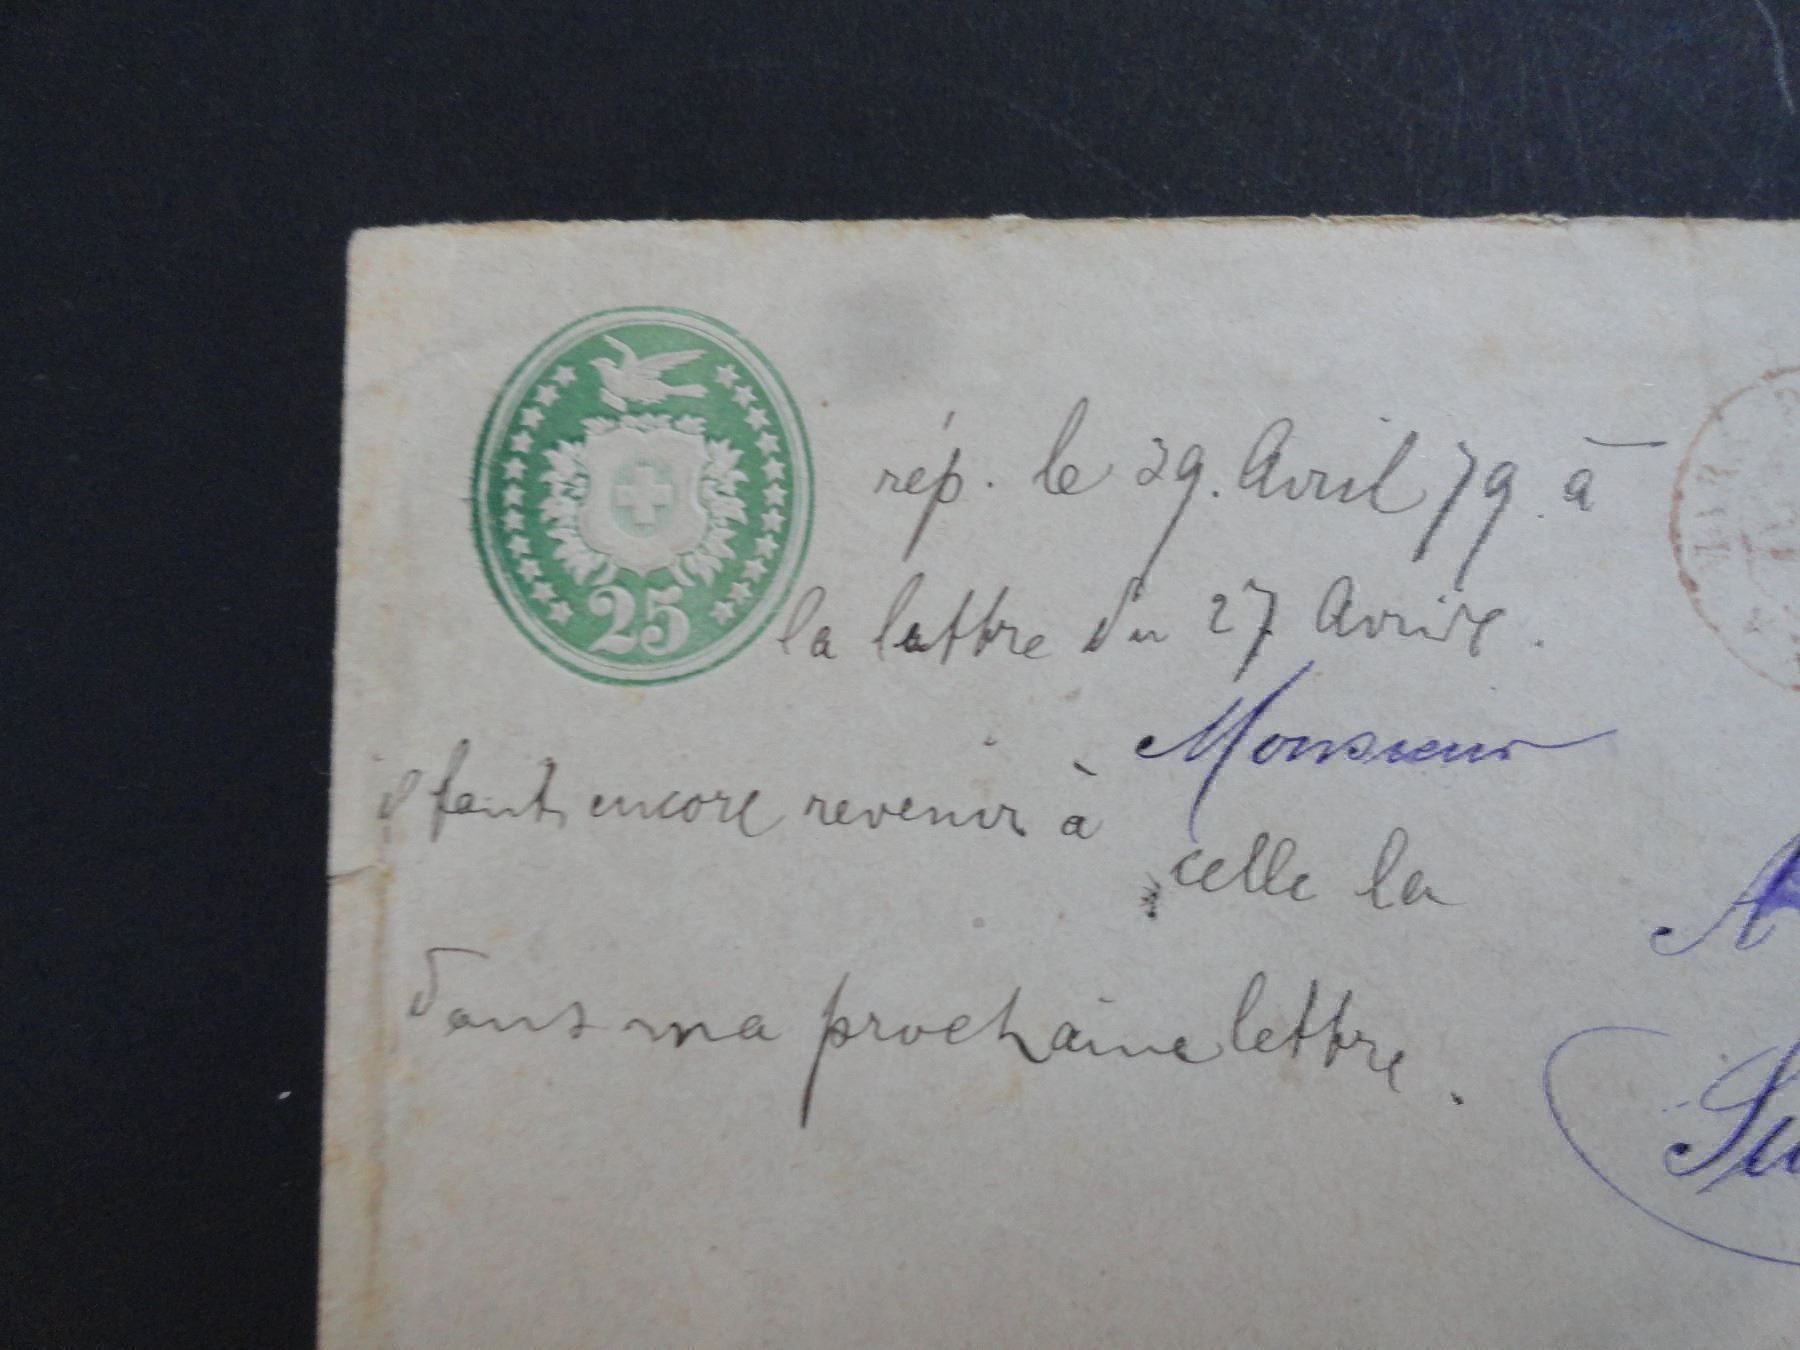 25
rép. le 29. Avril 79. à
la lettre du 27 Avril.
Monsieur
il faut encore revenir à
celle la
A
dans ma prochaine lettre.
Su